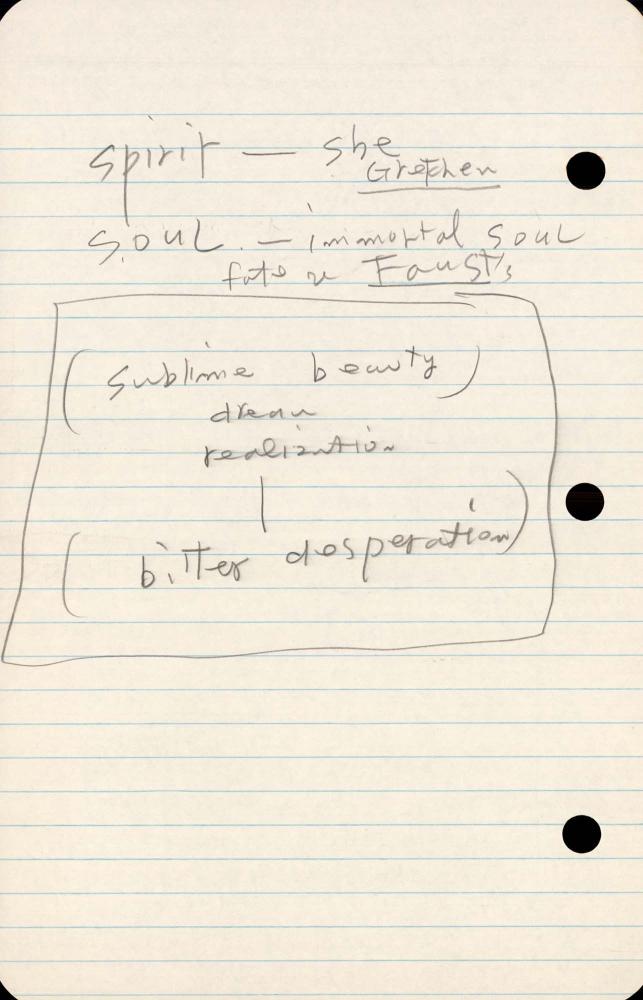 spirit — she
Gretchen
SOUL. — immortal SOUL
fate Faust's
(sublime beauty)
dream
realization
(bitter desperation)